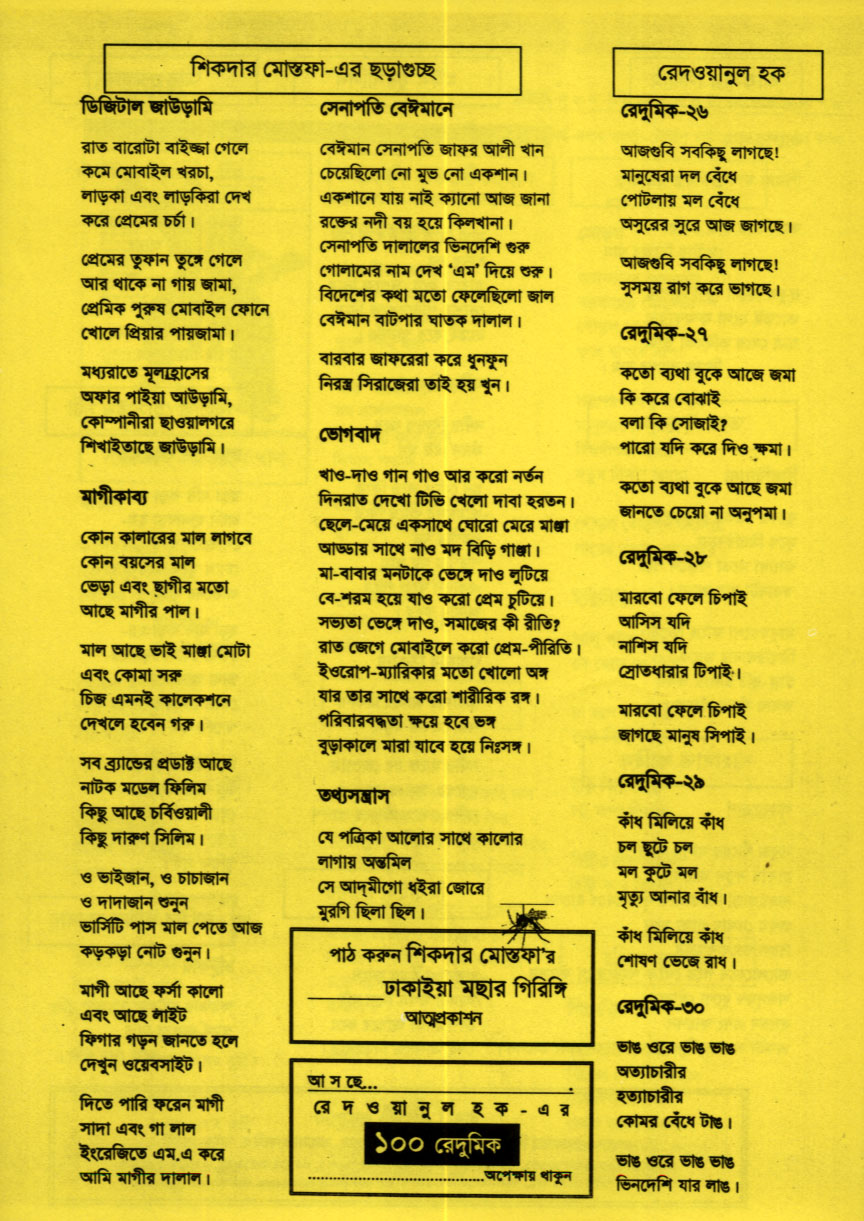 শিকদার মোস্তফা-এর ছড়াগুচ্ছ
ডিজিটাল জাউড়ামি
রাত বারোটা বাইজ্জা গেলে
কমে মোবাইল খরচা,
লাড়কা এবং লাড়কিরা দেখ
করে প্রেমের চর্চা।
প্রেমের তুফান তুঙ্গে গেলে
আর থাকে না গায় জামা,
প্রেমিক পুরুষ মোবাইল ফোনে
খোলে প্রিয়ার পায়জামা।
মধ্যরাতে মূল্যহ্রাসের
অফার পাইয়া আউড়ামি,
কোম্পানীরা ছাওয়ালগরে
শিখাইতাছে জাউড়ামি।
মাগীকাব্য
কোন কালারের মাল লাগবে
কোন বয়সের মাল
ভেড়া এবং ছাগীর মতো
আছে মাগীর পাল।
মাল আছে ভাই মাঞ্জা মোটা
এবং কোমা সরু
চিজ এমনই কালেকশনে
দেখলে হবেন গরু।
সব ব্র্যান্ডের প্রডাক্ট আছে
নাটক মডেল ফিলিম
কিছু আছে চর্বিওয়ালী
কিছু দারুণ সিলিম।
ও ভাইজান, ও চাচাজান
ও দাদাজান শুনুন
ভার্সিটি পাস মাল পেতে আজ
কড়কড়া নোট গুনুন।
মাগী আছে ফর্সা কালো
এবং আছে লাইট
ফিগার গড়ন জানতে হলে
দেখুন ওয়েবসাইট।
দিতে পারি ফরেন মাগী
সাদা এবং গা লাল
ইংরেজিতে এম.এ করে
আমি মাগীর দালাল।
সেনাপতি বেঈমানে
বেঈমান সেনাপতি জাফর আলী খান
চেয়েছিলো নো মুভ নো একশান।
একশানে যায় নাই ক্যানো আজ জানা
রক্তের নদী বয় হয়ে কিলখানা।
সেনাপতি দালালের ভিনদেশি গুরু
গোলামের নাম দেখ ‘এম’ দিয়ে শুরু।
বিদেশের কথা মতো ফেলেছিলো জাল
বেঈমান বাটপার ঘাতক দালাল।
বারবার জাফরেরা করে ধুনফুন
নিরস্ত্র সিরাজেরা তাই হয় খুন।
ভোগবাদ
খাও-দাও গান গাও আর করো নর্তন
দিনরাত দেখো টিভি খেলো দাবা হরতন।
ছেলে-মেয়ে একসাথে ঘোরো মেরে মাঞ্জা
আড্ডায় সাথে নাও মদ বিড়ি গাঞ্জা।
মা-বাবার মনটাকে ভেঙ্গে দাও লুটিয়ে
বে-শরম হয়ে যাও করো প্রেম চুটিয়ে।
সভ্যতা ভেঙ্গে দাও, সমাজের কী রীতি?
রাত জেগে মোবাইলে করো প্রেম-পীরিতি।
ইওরোপ-ম্যারিকার মতো খোলো অঙ্গ
যার তার সাথে করো শারীরিক রঙ্গ।
পরিবারবদ্ধতা ক্ষয়ে হবে ভঙ্গ
বুড়াকালে মারা যাবে হয়ে নিঃসঙ্গ।
তথ্যসন্ত্রাস
যে পত্রিকা আলোর সাথে কালোর
লাগায় অন্তমিল
সে আদ্‌মীগো ধইরা জোরে
মুরগি ছিলা ছিল।
পাঠ করুন শিকদার মোস্তফা'র
ঢাকাইয়া মছার গিরিঙ্গি
আত্মপ্রকাশন
আ স ছে...
রে দ ও য়া নু ল হ ক - এ র
১০০ রেদুমিক
অপেক্ষায় থাকুন
রেদওয়ানুল হক
রেদুমিক-২৬
আজগুবি সবকিছু লাগছে!
মানুষেরা দল বেঁধে
পোটলায় মল বেঁধে
অসুরের সুরে আজ জাগছে।
আজগুবি সবকিছু লাগছে!
সুসময় রাগ করে ভাগছে।
রেদুমিক-২৭
কতো ব্যথা বুকে আজে জমা
কি করে বোঝাই
বলা কি সোজাই?
পারো যদি করে দিও ক্ষমা।
কতো ব্যথা বুকে আছে জমা
জানতে চেয়ো না অনুপমা।
রেদুমিক-২৮
মারবো ফেলে চিপাই
আসিস যদি
নাশিস যদি
স্রোতধারার টিপাই।
মারবো ফেলে চিপাই
জাগছে মানুষ সিপাই।
রেদুমিক-২৯
কাঁধ মিলিয়ে কাঁধ
চল ছুটে চল
মল কুটে মল
মৃত্যু আনার বাঁধ।
কাঁধ মিলিয়ে কাঁধ
শোষণ ভেজে রাধ।
রেদুমিক-৩০
ভাঙ ওরে ভাঙ ভাঙ
অত্যাচারীর
হত্যাচারীর
কোমর বেঁধে টাঙ।
ভাঙ ওরে ভাঙ ভাঙ
ভিনদেশি যার লাঙ।